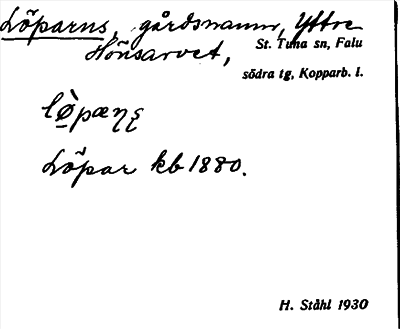 Löparns, gårdsnamn, Yttre
Hönsarvet, St. Tuna sn, Falu
södra tg, Kopparb. l.
Löpar kb 1880.
H. Ståhl 1930